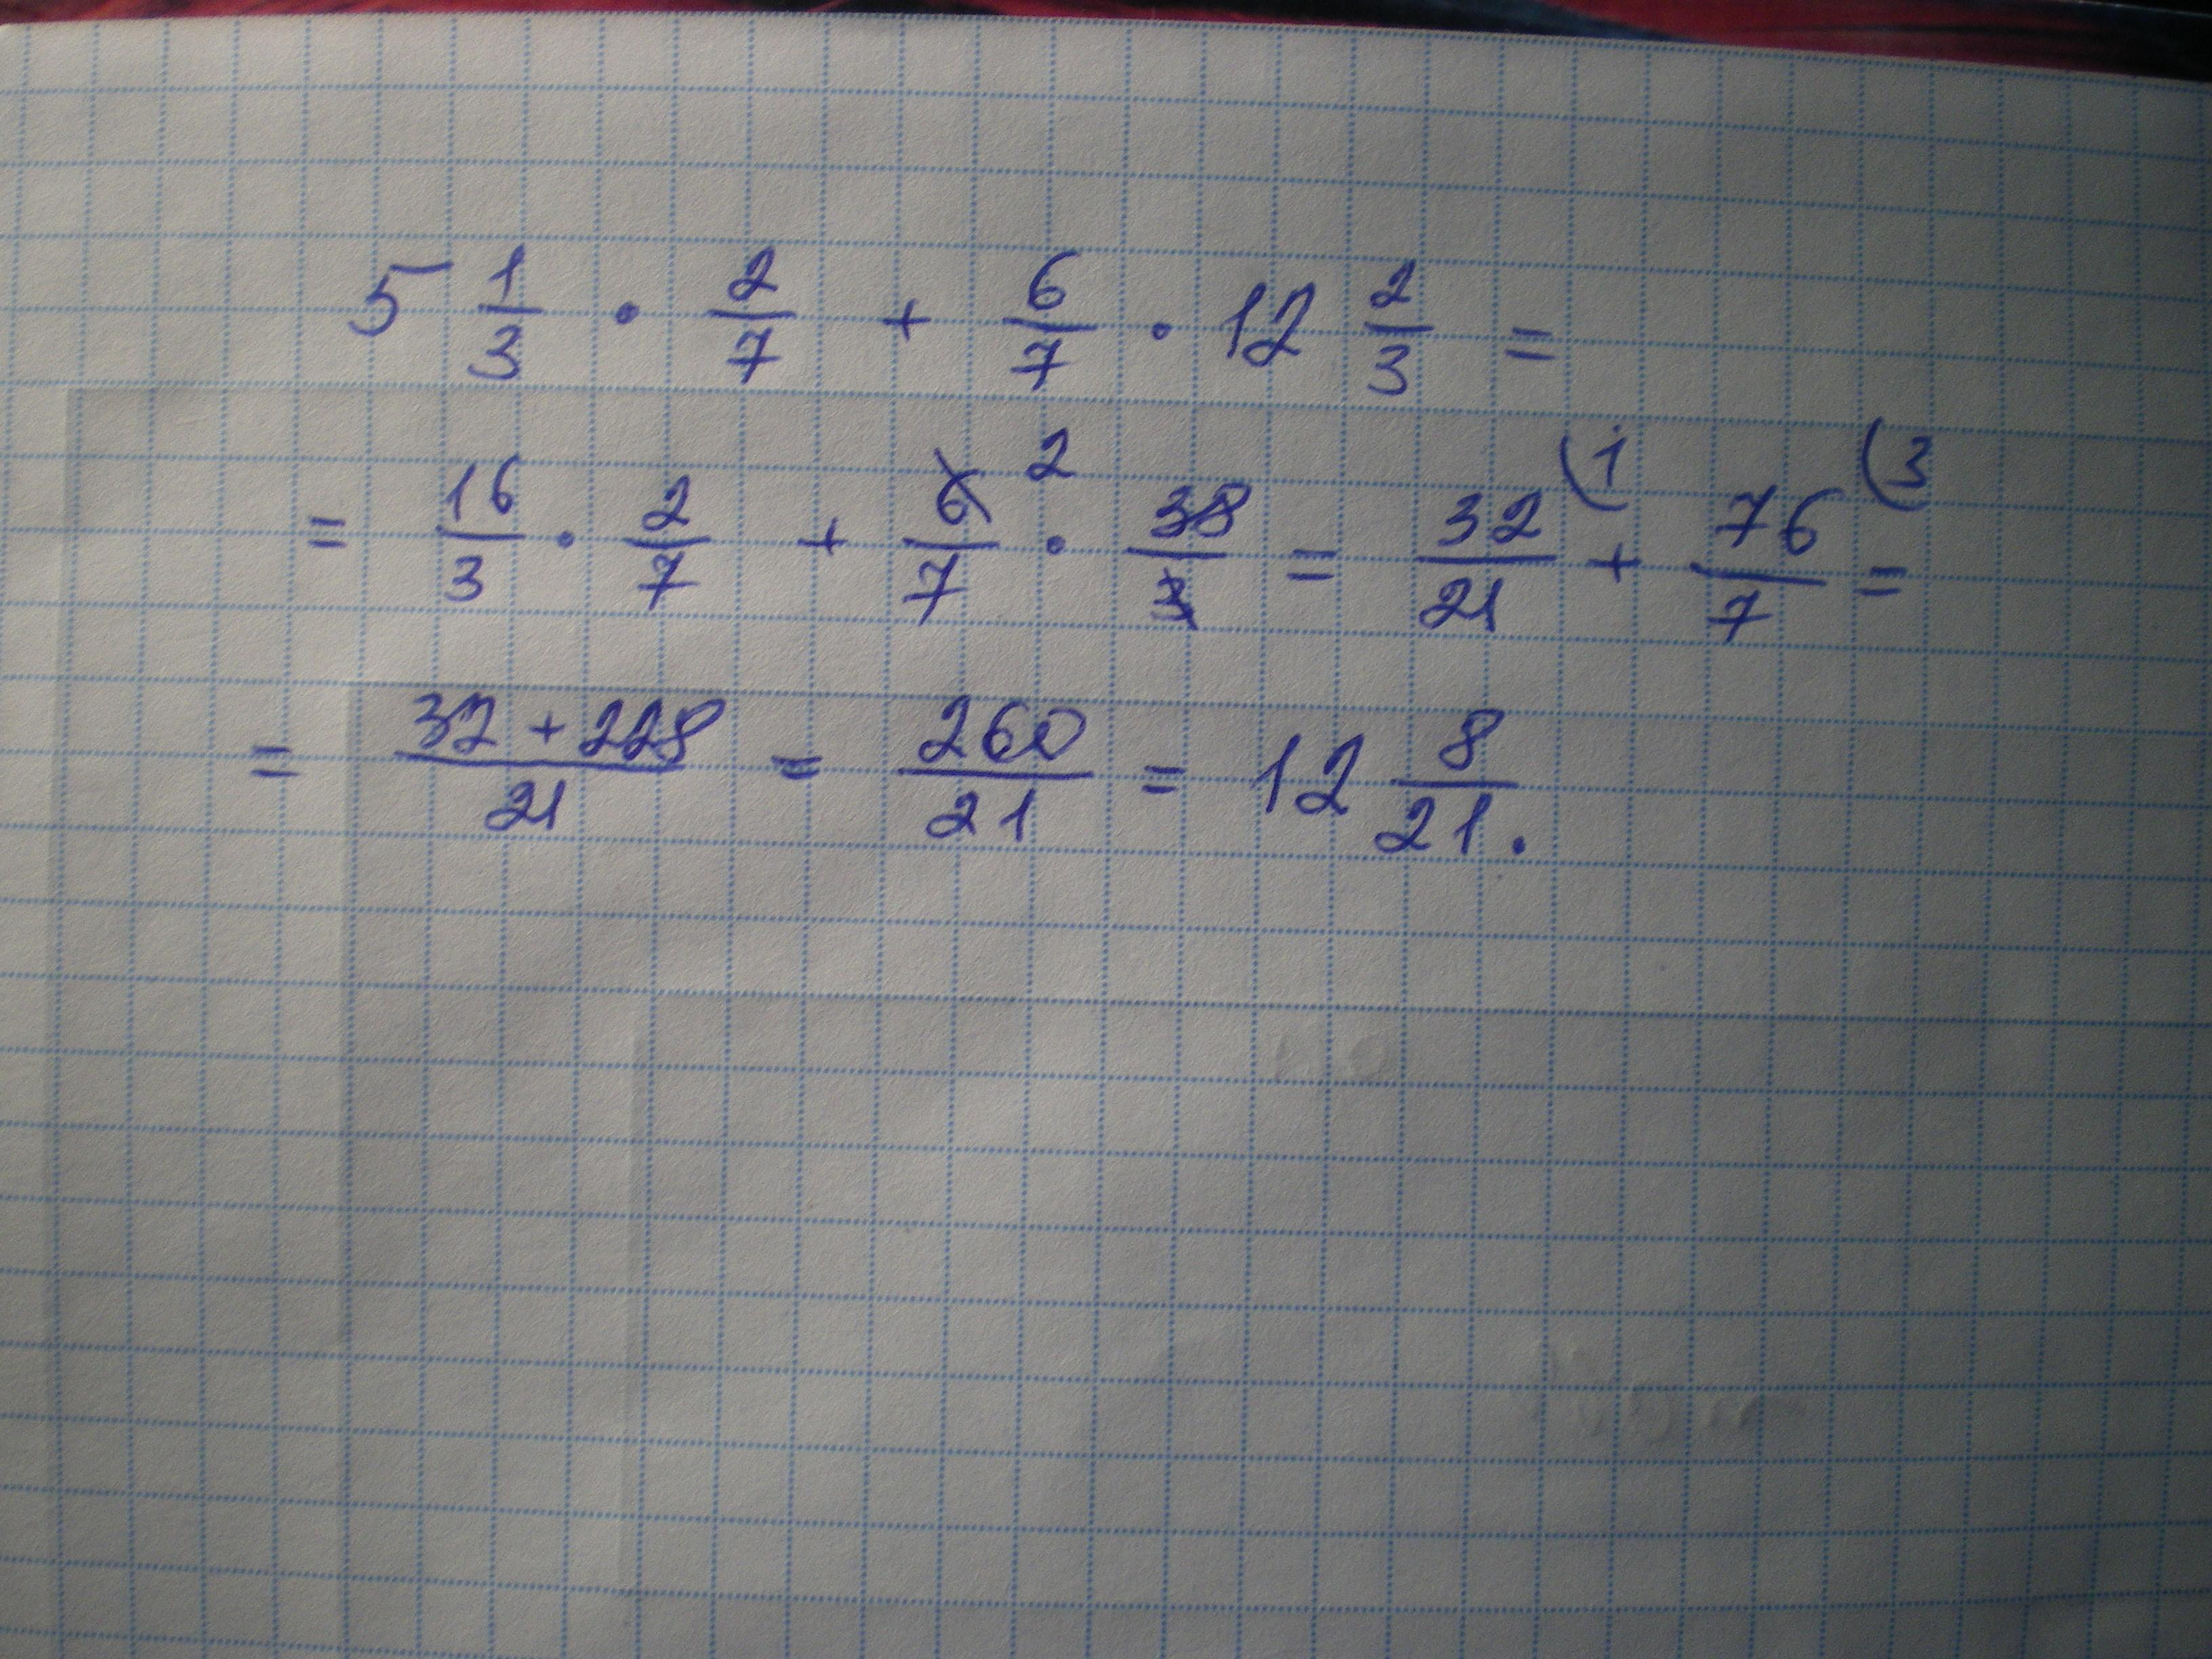 5 1/3 · 2/7 + 6/7 · 12 2/3 =
= 16/3 · 2/7 + 6/7 2 · 38/3 = 32/21 (1 + 76/7 (3 =
= 32 + 228/21 = 260/21 = 12 8/21.